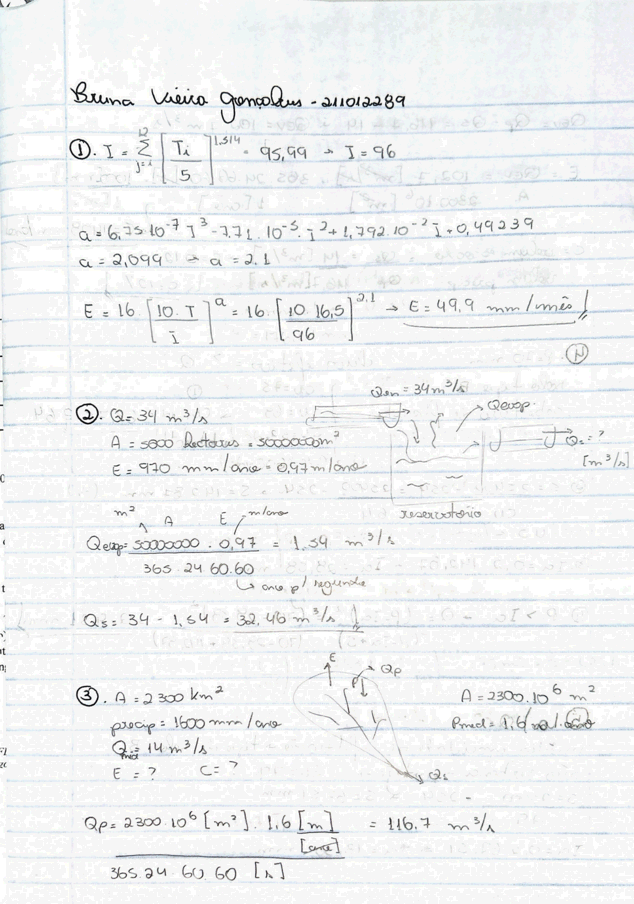 Bruna Vieira Gonçalves - 211012289
①. I = 12 Σ j=i [Ti / 5]^1,514 = 95,99 → I = 96
a = 6,75.10^-7 I^3 - 7,71.10^-5. I^2 + 1,792.10^-2 I + 0,49239
a = 2,099 → a = 2.1
E = 16 [10. T / I]^a = 16. [10 16,5 / 96]^2,1 → E = 49,9 mm/mês
②. Q = 34 m³/s
A = 5000 hectares = 50000000m²
E = 970 mm/ano = 0,97m/ano
Qen = 34m³/s
Qevap.
Qs = ?
[m³/s]
reservatório
m² A E m/ano
Qevap = 50000000 . 0,97 / 365.24.60.60 = 1,54 m³/s
↳ ano p/ segundo
Qs = 34 - 1,54 = 32,46 m³/s
③. A = 2300 km²
precip = 1600 mm/ano
Qmd = 14 m³/s
E = ? C = ?
E
P
Qp
Qs
A = 2300.10^6 m²
Pmed = 1,6
Qp = 2300.10^6 [m²] . 1,6 [m] / [ano] = 116,7 m³/s
365.24 60 60 [s]